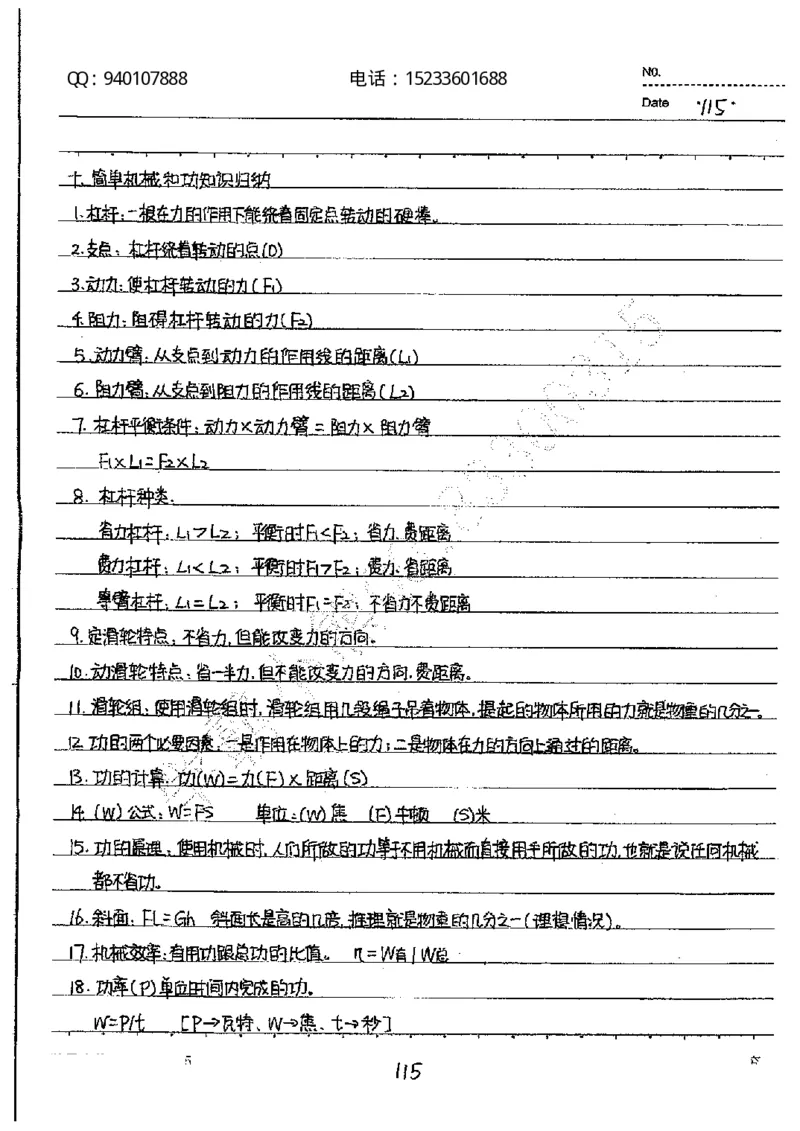 QQ：940107888 电话：15233601688 No.
Date 115
十.简单机械和功知识归纳
1.杠杆：一根在力的作用下能绕着固定点转动的硬棒。
2.支点：杠杆绕着转动的点(O)
3.动力：使杠杆转动的力(F1)
4.阻力：阻碍杠杆转动的力(F2)
5.动力臂：从支点到动力的作用线的距离(L1)
6.阻力臂：从支点到阻力的作用线的距离(L2)
7.杠杆平衡条件：动力×动力臂=阻力×阻力臂
F1×L1=F2×L2
8.杠杆种类.
省力杠杆：L1>L2；平衡时F1<F2；省力.费距离
费力杠杆：L1<L2；平衡时F1>F2；费力.省距离
等臂杠杆：L1=L2；平衡时F1=F2；不省力不费距离
9.定滑轮特点：不省力,但能改变力的方向。
10.动滑轮特点：省一半力,但不能改变力的方向.费距离。
11.滑轮组：使用滑轮组时,滑轮组用几段绳子吊着物体,提起的物体所用的力就是物重的几分之一。
12.功的两个必要因素：一是作用在物体上的力；二是物体在力的方向上通过的距离。
13.功的计算.功(W)=力(F)×距离(S)
14.(W)公式：W=FS 单位：(W)焦 (F)牛顿 (S)米
15.功的原理：使用机械时,人们所做的功等于不用机械而直接用手所做的功,也就是说任何机械
都不省功。
16.斜面：FL=Gh 斜面长是高的几倍,推理就是物重的几分之一(理想情况)。
17.机械效率：有用功跟总功的比值。 η=W有/W总
18.功率(P)单位时间内完成的功。
W=P/t [P→瓦特、W→焦、t→秒]
5
115